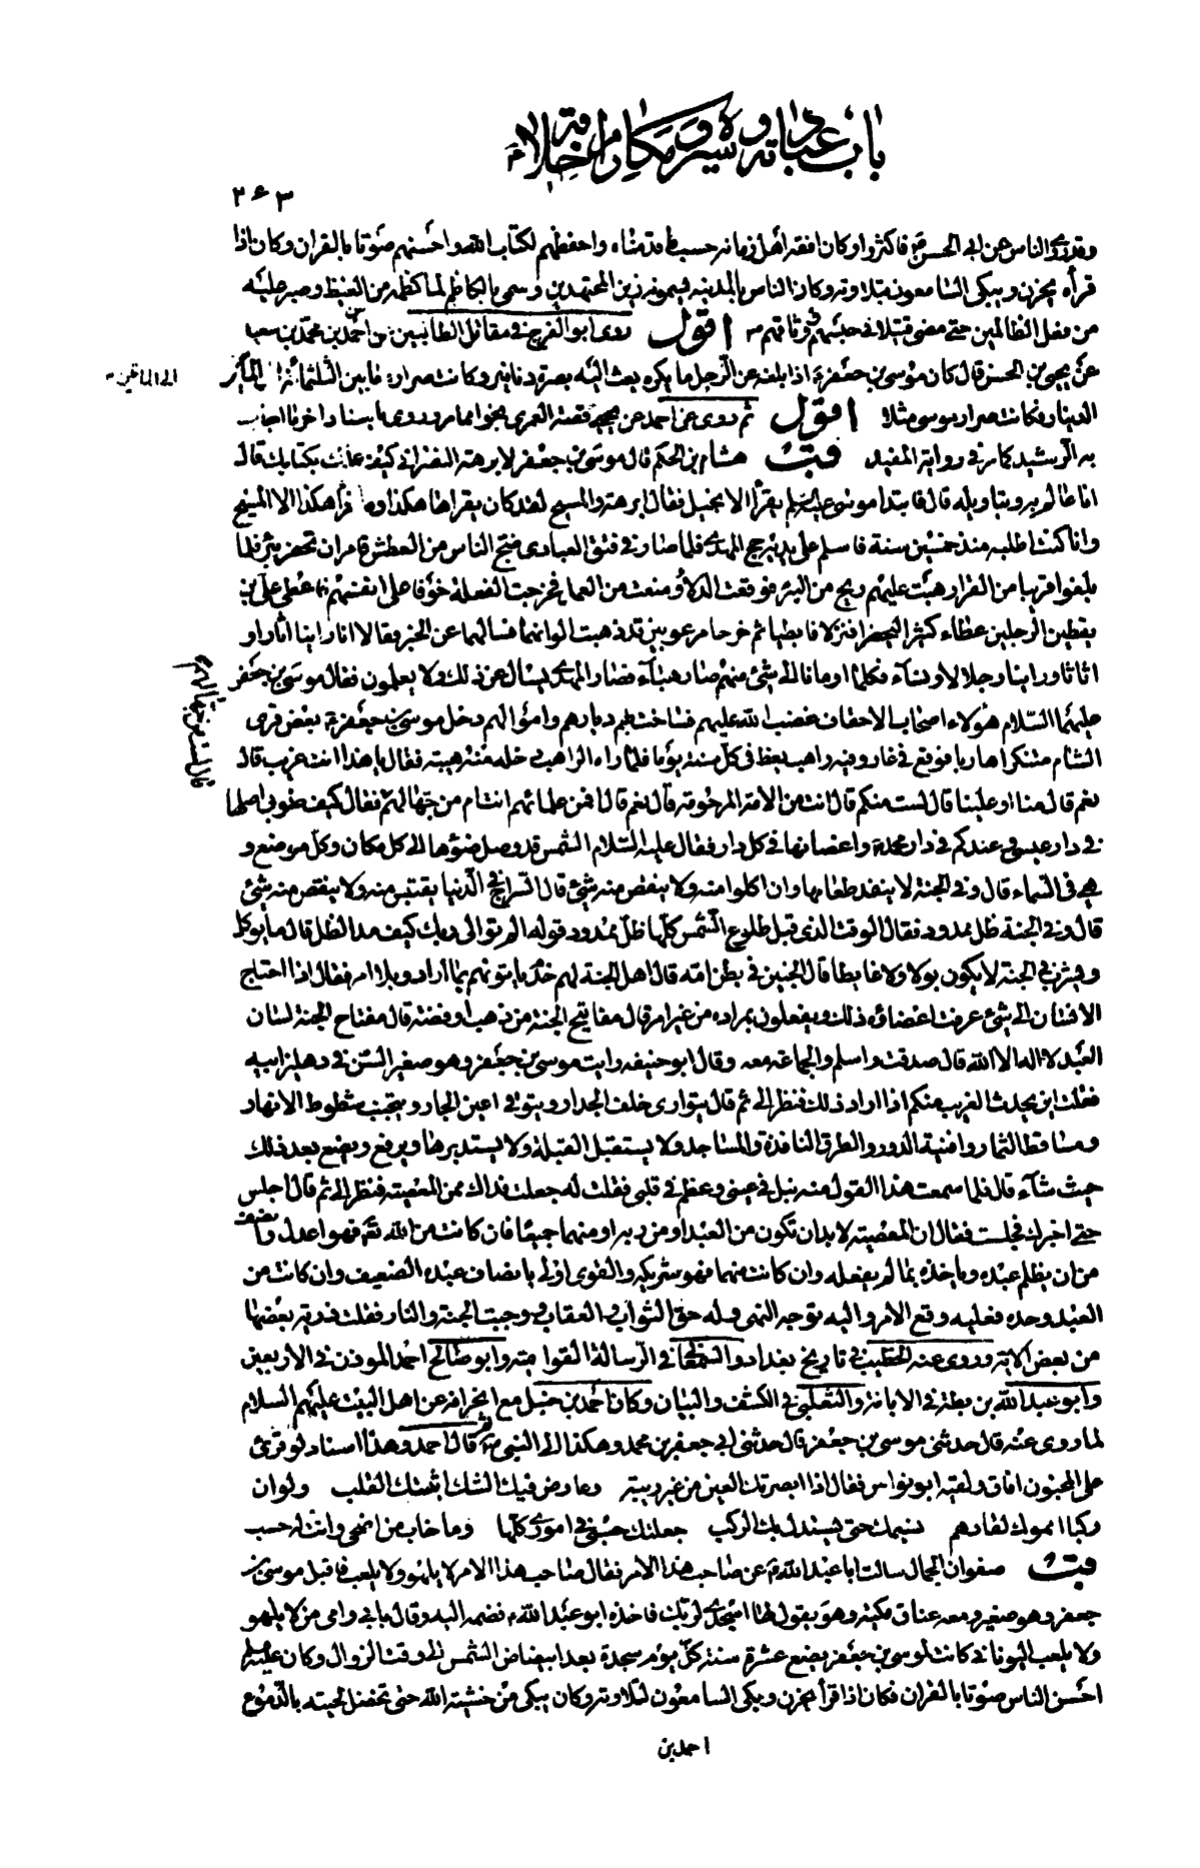 باب عبادته وسيره ومكارم اخلاقه
٢۶٣
وقد روى الناس عن ابى الحسن ع فاكثروا وكان افقه اهل زمانه حسب ما قدمناه واحفظهم لكتاب الله واحسنهم صوتا بالقران وكان اذا
قرأه يحزن ويبكى السامعون بتلاوته وكان الناس بالمدينه يسمونه زين المجتهدين وسمى بالكاظم لما كظمه من الغيظ وصبر عليه
من فعل الظالمين حتى مضى قتيلا فى حبسهم ووثاقهم اقول روى ابو الفرج فى مقاتل الطالبيين عن احمد بن محمد بن سعيد
عن يحيى بن الحسن قال كان موسى بن جعفر ع اذا بلغه عن الرجل ما يكره بعث اليه بصرة دنانير وكانت صراره ما بين الثلثمائة
الى المائتين
الدينار فكانت صرار موسى مثلا اقول ثم روى عن احمد عن يحيى قصة العمرى نحوا مما مر وروى باسناد اخر ما اجاب
به الرشيد كما مر فى رواية المفيد قب هشام بن الحكم قال موسى بن جعفر لابرهة النصرانى كيف علمك بكتابك قال
انا عالم به وبتاويله قال فابتدا موسى عليه السلم يقرأ الانجيل فقال ابرهة والمسيح لقد كان يقراها هكذا وما قرأ هكذا الا المسيح
وانا كنت اطلبه منذ خمسين سنة فاسلم على يديه حج المهدى فلما صار فى فتق العبادى ضج الناس من العطش فامر ان تحفر بئر فلما
بلغوا قريبا من القرار هبت عليهم ريح من البئر فوقعت الدلاء ومنعت من العمل فخرجت الفعلة خوفا على انفسهم فاعطى على بن
يقطين الرجلين عطاء كثيرا ليحفرا فنزلا فابطيا ثم خرجا مرعوبين قد ذهبت الوانهما فسالهما عن الخبر فقالا انا راينا اثارا و
اثاثا وراينا رجالا ونساء فكلما اومأنا الى شئ منهم صار هباء فصار المهدى يسال عن ذلك ولا يعلمون فقال موسى بن جعفر
عليهما السلام هؤلاء اصحاب الاحقاف غضب الله عليهم فساخت بهم ديارهم واموالهم دخل موسى بن جعفر ع بعض قرى
الشام متنكرا هاربا فوقع فى غار وفيه راهب يعظ فى كل سنة يوما فلما راه الراهب دخله منه هيبة فقال يا هذا انت غريب قال
نعم قال منا او علينا قال لست منكم قال انت من الامة المرحومة قال نعم قال افمن علمائهم انت ام من جهالهم فقال كيف طوبى اصلها
قال لست من جهالهم
فى دار عيسى وعندكم فى دار محمد ص واغصانها فى كل دار فقال عليه السلام الشمس قد وصل ضوؤها الى كل مكان وكل موضع و
هى فى السماء قال وفى الجنة لا ينفد طعامها وان اكلوا منه ولا ينقص منه شئ قال السراج فى الدنيا يقتبس منه ولا ينقص منه شئ
قال وفى الجنة ظل ممدود فقال الوقت الذى قبل طلوع الشمس كلها ظل ممدود قوله الم تر الى ربك كيف مد الظل قال ما يؤكل
ويشرب فى الجنة لا يكون بولا ولا غايطا قال الجنين فى بطن امه قال اهل الجنة لهم خدم ياتونهم بما ارادوا بلا امر فقال اذا احتاج
الانسان الى شئ عرفت اعضاؤه ذلك ويفعلون بمراده من غير امر قال مفاتيح الجنة من ذهب او فضة قال مفتاح الجنة لسان
العبد لا اله الا الله قال صدقت واسلم والجماعة معه وقال ابو حنيفه رايت موسى بن جعفر وهو صغير السن فى دهليز ابيه
فقلت اين يحدث الغريب منكم اذا اراد ذلك فنظر الى ثم قال يتوارى خلف الجدار ويتوقى اعين الجار ويتجنب شطوط الانهار
ومساقط الثمار وافنية الدور والطرق النافذة والمساجد ولا يستقبل القبلة ولا يستدبرها ويرفع ويضع بعد ذلك
حيث شاء قال فلما سمعت هذا القول منه نبل فى عينى وعظم فى قلبى فقلت له جعلت فداك ممن المعصية فنظر الى ثم قال اجلس
حتى اخبرك فجلست فقال ان المعصية لا بد ان تكون من العبد او من ربه او منهما جميعا فان كانت من الله تع فهو اعدل وانصف
من ان يظلم عبده وياخذه بما لم يفعله وان كانت منهما فهو شريكه والقوى اولى بانصاف عبده الضعيف وان كانت من
العبد وحده فعليه وقع الامر واليه توجه النهى وله حق الثواب والعقاب ووجبت الجنة والنار فقلت ذرية بعضها
من بعض الاية وروى عنه الخطيب فى تاريخ بغداد والسمعانى فى الرسالة القوامية وابو صالح احمد الموذن فى الاربعين
وابو عبد الله بن بطة فى الابانة والثعلبى فى الكشف والبيان وكان احمد بن حنبل مع انحرافه عن اهل البيت عليهم السلام
لما روى عنه قال حدثنى موسى بن جعفر قال حدثنى ابى جعفر بن محمد وهكذا الى النبى ص ثم قال احمد وهذا اسناد لو قرئ
على المجنون افاق ولقيه ابو نواس فقال اذا ابصرتك العين من غير ريبة وعارض فيك الشك اثبتك القلب ولو ان
ركبا امموك لقادهم نسيمك حتى يستدل بك الركب جعلتك حسبى فى امورى كلها وما خاب من اضحى وانت له حسب
قب صفوان الجمال سالت ابا عبد الله ع عن صاحب هذا الامر فقال صاحب هذا الامر لا يلهو ولا يلعب فاقبل موسى بن
جعفر وهو صغير ومعه عناق مكية وهو يقول لها اسجدى لربك فاخذه ابو عبد الله ع فضمه اليه وقال بابى وامى من لا يلهو
ولا يلعب اليونانى كانت لموسى بن جعفر بضع عشرة سنة كل يوم سجدة بعد ابيضاض الشمس الى وقت الزوال وكان عليه السلم
احسن الناس صوتا بالقران فكان اذا قرأ يحزن ويبكى السامعون لتلاوته وكان يبكى من خشية الله حتى تخضل لحيته بالدموع
احمد بن